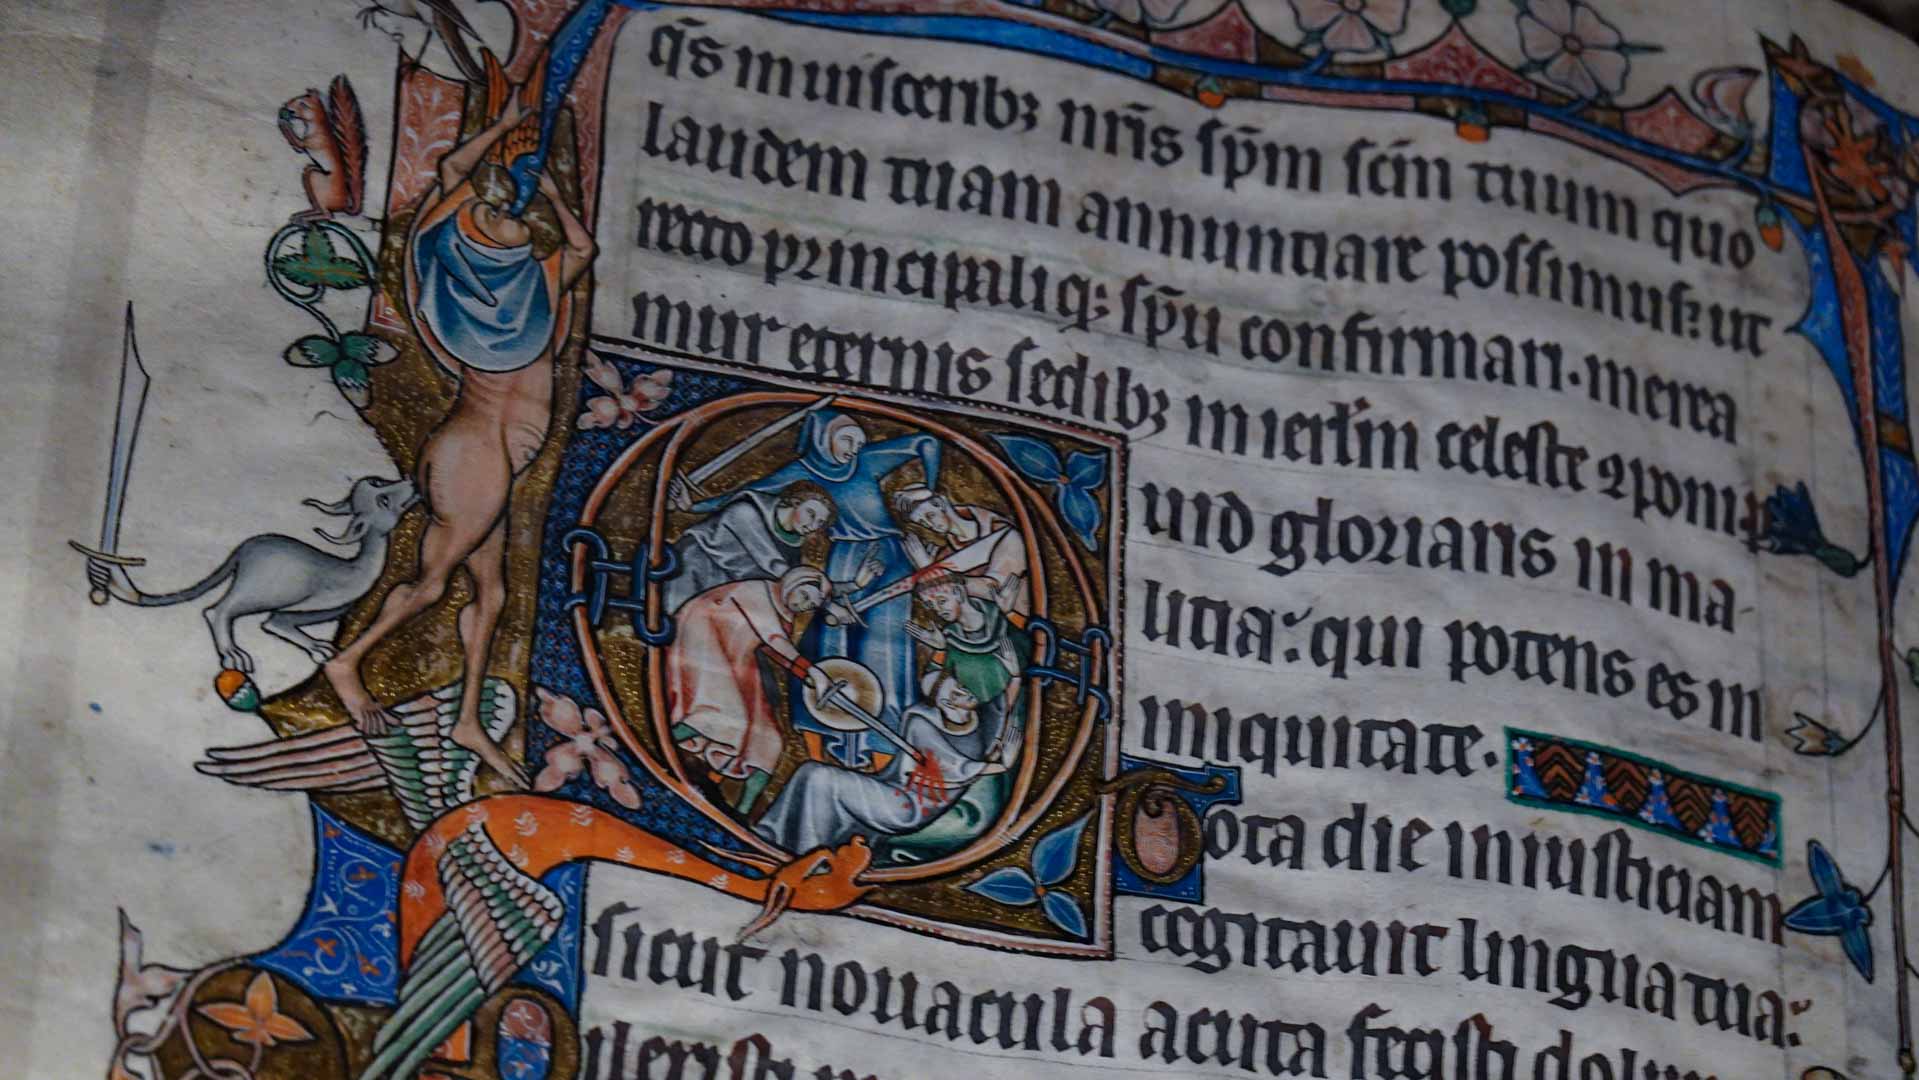 q̄s in uisceribꝫ nr̄is sp̄m sc̄m tuum quo
laudem tuam annunciare possimus: ut
recto principaliqꝫ sp̄u confirmati. merea
mur eternis sedibꝫ in ierl̄m celeste ꝯponi.
uid gloriaris in ma
licia: qui potens es in
iniquitate.
Tota die iniusticiam
cogitauit lingua tua:
sicut nouacula acuta fecisti dolum